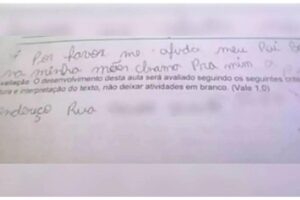 Por favor me ajuda meu Pai
na minha mãe chama Pra mim a
avaliação: O desenvolvimento desta aula será avaliado seguindo os seguintes
tura e interpretação do texto, não deixar atividades em branco. (Vale 1,0)
endereço Rua